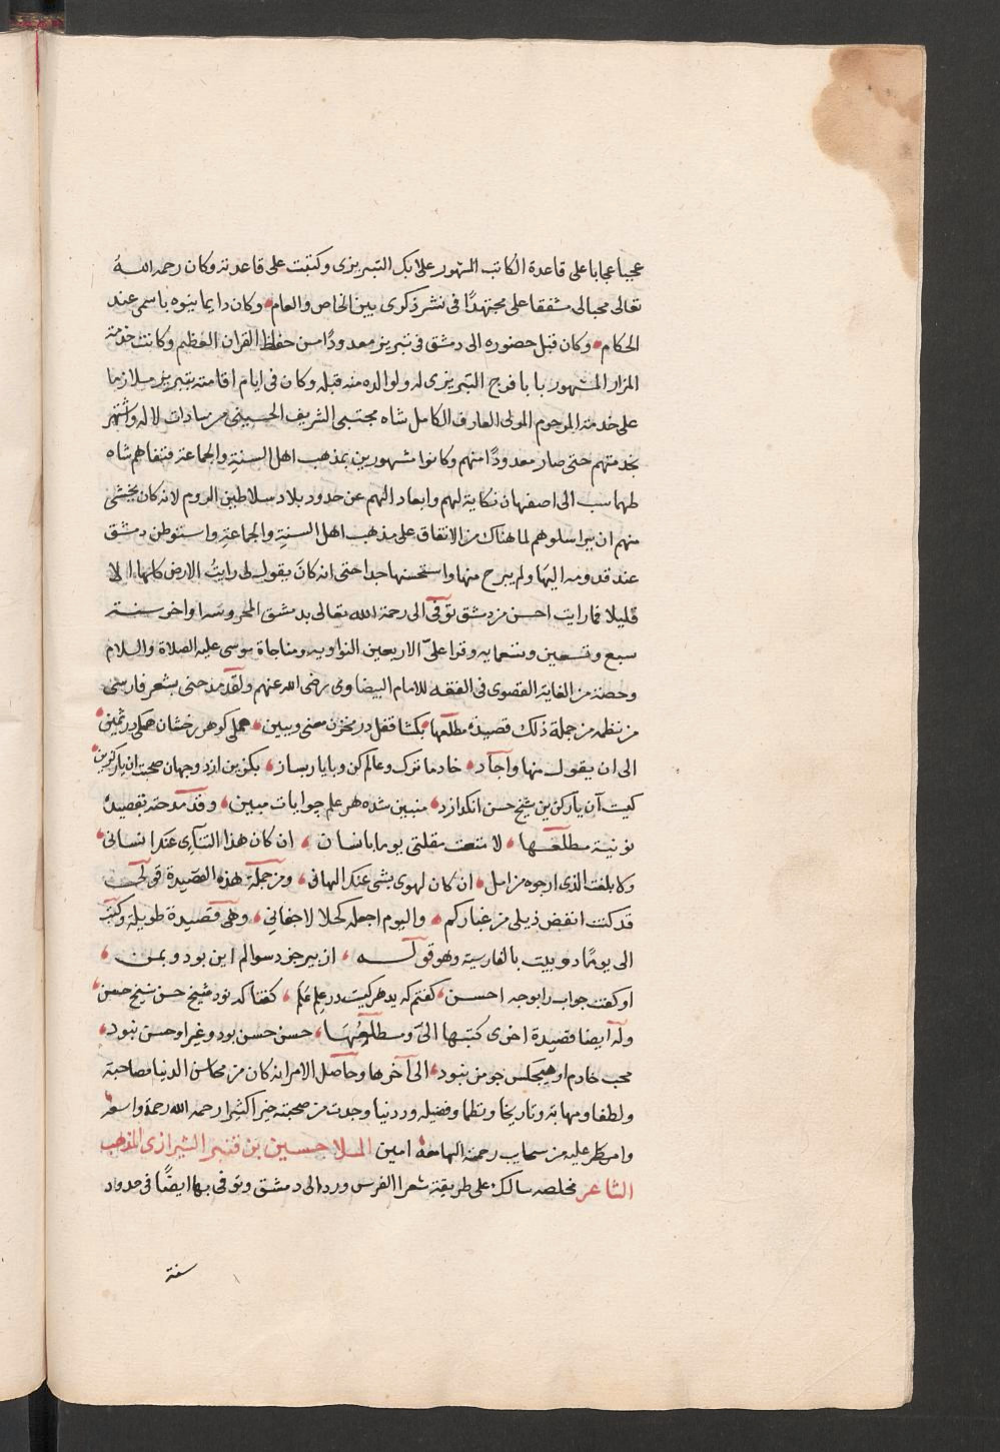 عجيبا عجابا على قاعدة الكاتب المشهور علابك التبريزى وكتبت على قاعدته وكان رحمه الله
تعالى محبا لى مشفقا على مجتهدًا فى نشر ذكرى بين الخاص والعام وكان دايما ينوه باسمى عند
الحكام وكان قبل حضوره الى دمشق فى تبريز معدودًا من حفاظ القران العظيم وكانت خدمة
المزار المشهور بابا فرج التبريزى له ولوالده منه قبله وكان فى ايام اقامته بتبريز ملازما
على خدمة المرحوم المولى العارف الكامل شاه مجتبى الشريف الحسينى من سادات لاله واشتهر
بخدمتهم حتى صار معدودًا منهم وكانوا مشهورين بمذهب اهل السنة والجماعة فنفاهم شاه
طهماسب الى اصفهان نكاية لهم وابعاد الهم عن حدود بلاد سلاطين الروم لانه كان يخشى
منهم ان يراسلوهم لما هناك من الاتفاق على مذهب اهل السنة والجماعة واستوطن دمشق
عند قدومه اليها ولم يبرح منها واستحسنها جدا حتى انه كان يقول لى رايت الارض كلها الا
قليلا فما رايت احسن من دمشق توفى الى رحمة الله تعالى بدمشق المحروسة اواخر سنة
سبع وتسعين وتسعمايه وقرا علىّ الاربعين النواويه ومناجاة موسى عليه الصلاة والسلام
وحصة من الغاية القصوى فى الفقه للامام البيضاوى رضى الله عنهم ولقد مدحنى بشعر فارسى
من نظمه من جملة ذلك قصيدة مطلعها بكشا قفل در مخزن معنى وببين همكى كوهر رخشان همكى در ثمين
الى ان يقول منها واجاد خادما ترك وعالم كن وبايار بساز بكزين ازدوجهان صحبت ان يار كزين
كيست آن يار كزين شيخ حسن انكه ازو متبين شده هر علم جوابات مبين وقد مدحته بقصيدة
نونية مطلعها لا متعت مقلتى يوما بانسان ان كان هذا التنآى عنك انسانى
ولا بلغت الذى ارجوه من امل ان كان لهوى بشى عنك الهانى ومن جملة هذه القصيدة قولى
قد كنت انفض ذيلى من غباركم واليوم اجعله كحلا لاجفانى وهى قصيدة طويلة وكتب
الى يومًا دوبيت بالفارسية وهو قوله از پير خرد سوالم اين بود وبمن
او كفت جواب را بوجه احسن كفتم كه بدهر كيست در علم عَلَم كفتا كه نود شيخ حسن شيخ حسن
وله ايضا قصيدة اخرى كتبها الىّ ومطلعها حسن حسن بود وغير او حسن نبود
محب خادم او هيچكس چو من نبود الى آخرها وحاصل الامر انه كان من محاسن الدنيا مصاحبة
ولطفا ومهابة وتاريخا ونظما وفضيلة ودنيا وجدت من صحبته خيرا كثيرا رحمه الله رحمة واسعة
وامطر عليه من سحايب رحمته الهامعة امين الملا حسين بن قنبر الشيرازى المذهب
الشاعر مخلصه سالك على طريقة شعرا الفرس ورد الى دمشق وتوفى بها ايضًا فى حدود
سنة